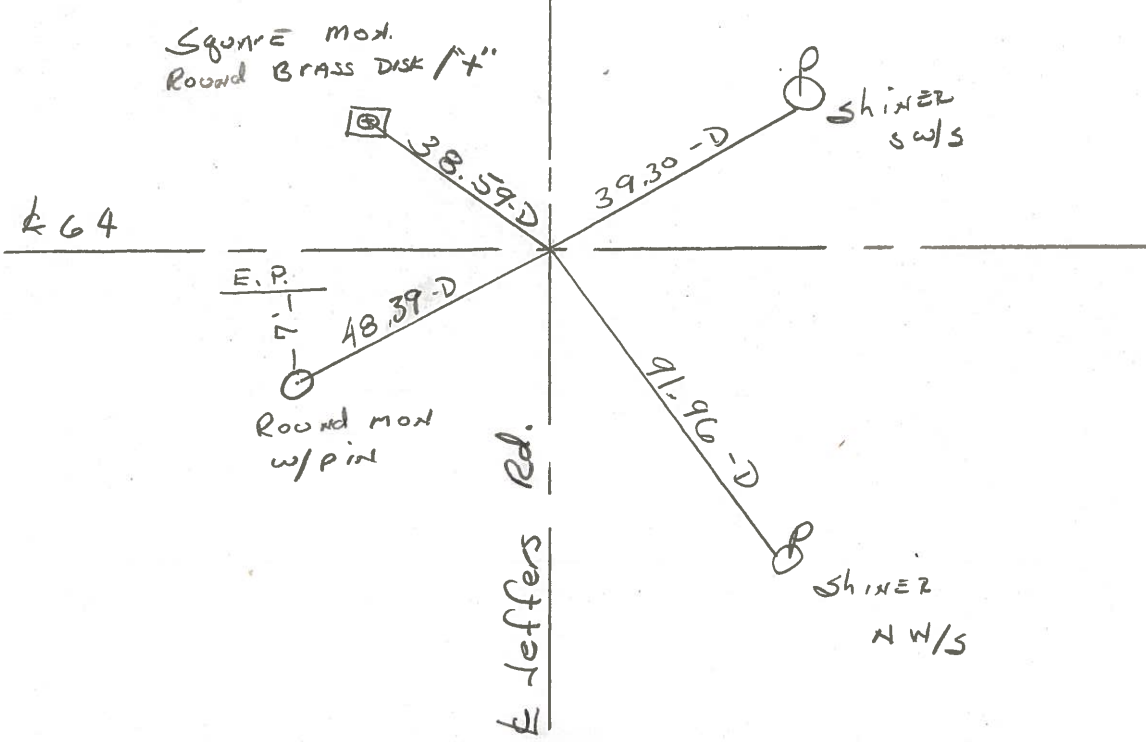 Square MON.
Round BrASS DISK /"+"
ShiNER
SW/S
38.59-D
39.30-D
℄ 64
E.P.
7'
48.39-D
91.96-D
Round MON
w/PiN
℄ Jeffers Rd.
ShiNER
NW/S